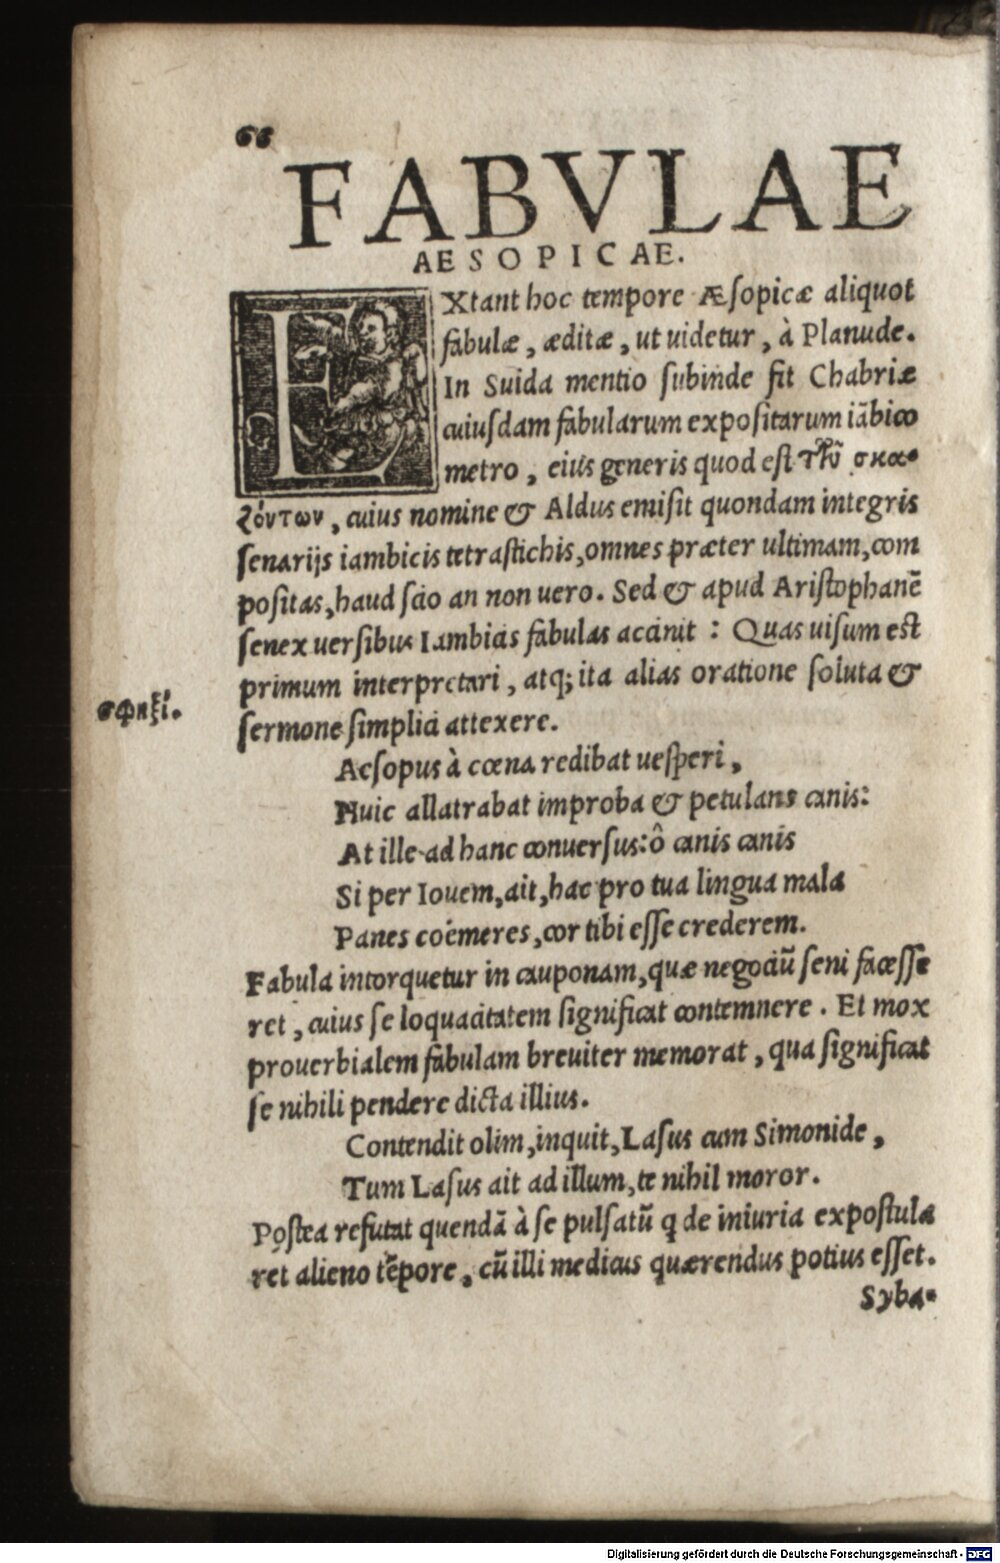 66
FABVLAE
AESOPICAE.
EXtant hoc tempore Æsopicæ aliquot
fabulæ, æditæ, ut uidetur, à Planude.
In Suida mentio subinde fit Chabriæ
cuiusdam fabularum expositarum iãbico
metro, eius generis quod est τῶν σκα-
ζόντων, cuius nomine & Aldus emisit quondam integris
senarijs iambicis tetrastichis, omnes præter ultimam, com
positas, haud scio an non uero. Sed & apud Aristophanẽ
senex uersibus Iambicis fabulas accinit : Quas uisum est
primum interpretari, atq; ita alias oratione soluta &
σφηξί.
sermone simplici attexere.
Aesopus à cœna redibat uesperi,
Huic allatrabat improba & petulans canis:
At ille ad hanc conuersus: ô canis canis
Si per Iouem, ait, hac pro tua lingua mala
Panes coëmeres, cor tibi esse crederem.
Fabula intorquetur in cauponam, quæ negociũ seni facesse
ret, cuius se loquacitatem significat contemnere. Et mox
prouerbialem fabulam breuiter memorat, qua significat
se nihili pendere dicta illius.
Contendit olim, inquit, Lasus cum Simonide,
Tum Lasus ait ad illum, te nihil moror.
Postea refutat quendã à se pulsatũ q de iniuria expostula
ret alieno tẽpore, cũ illi medicus quærendus potius esset.
Syba-
Digitalisierung gefördert durch die Deutsche Forschungsgemeinschaft - DFG